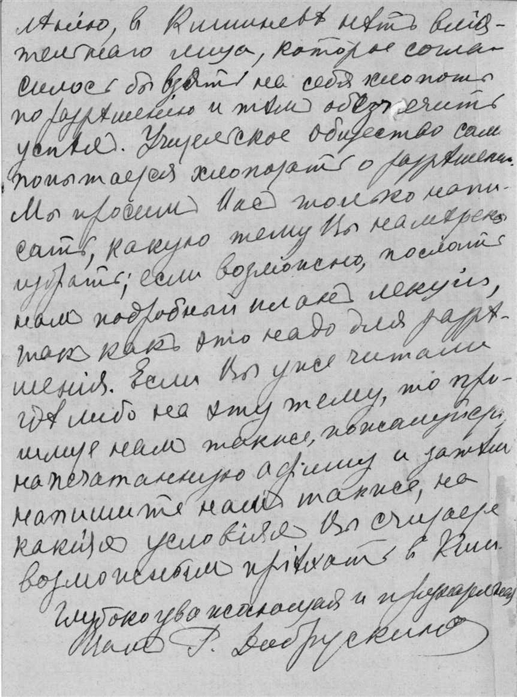 лѣнію, въ Кишиневѣ нѣтъ влія-
тельнаго лица, которое согла-
силось бы взять на себя хлопоты
по разрѣшенію и тѣмъ обезпечить
успѣхъ. Общество сам
попытается хлопотать о разрѣшеніи.
Мы просимъ Васъ только напи-
сать, какую тему Вы намѣрены
избрать; если возможно, послать
нам подробный планъ лекціи,
такъ какъ это надо для разрѣ-
шенія. Если Вы уже читали
гдѣ либо на эту тему, то при-
шлите нам также, пожалуйста,
напечатанную афишу и затѣм
напишите нам также, на
какія условія Вы считаете
возможным пріѣхать в Киш.
Глубокоуважающая и преданная
Вамъ Р. Добрускина